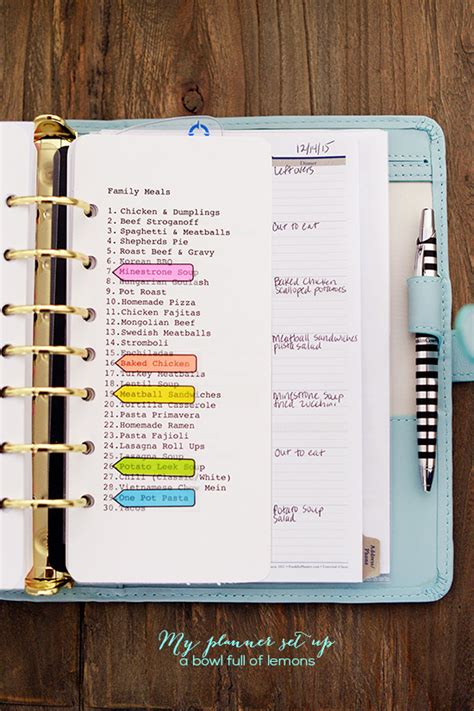 Family Meals
1. Chicken & Dumplings
2. Beef Stroganoff
3. Spaghetti & Meatballs
4. Shepherds Pie
5. Roast Beef & Gravy
6. Korean BBQ
7. Minestrone Soup
8. Hungarian Goulash
9. Pot Roast
10. Homemade Pizza
11. Chicken Fajitas
12. Mongolian Beef
13. Swedish Meatballs
14. Stromboli
15. Enchiladas
16. Baked Chicken
17. Turkey Meatballs
18. Lentil Soup
19. Meatball Sandwiches
20. Tortilla Casserole
21. Pasta Primavera
22. Homemade Ramen
23. Pasta Fajioli
24. Lasagna Roll Ups
25. Lasagna Soup
26. Potato Leek Soup
27. Chili (Classic/White)
28. Vietnamese Chow Mein
29. One Pot Pasta
30. Tacos
12/14/15
Dinner
Leftovers
Out to eat
Baked Chicken
Scalloped potatoes
Meatball sandwiches
pasta salad
Minestrone Soup
fried zucchini
Out to eat
Potato Soup
Salad
Address/
Phone
My planner set up
a bowl full of lemons